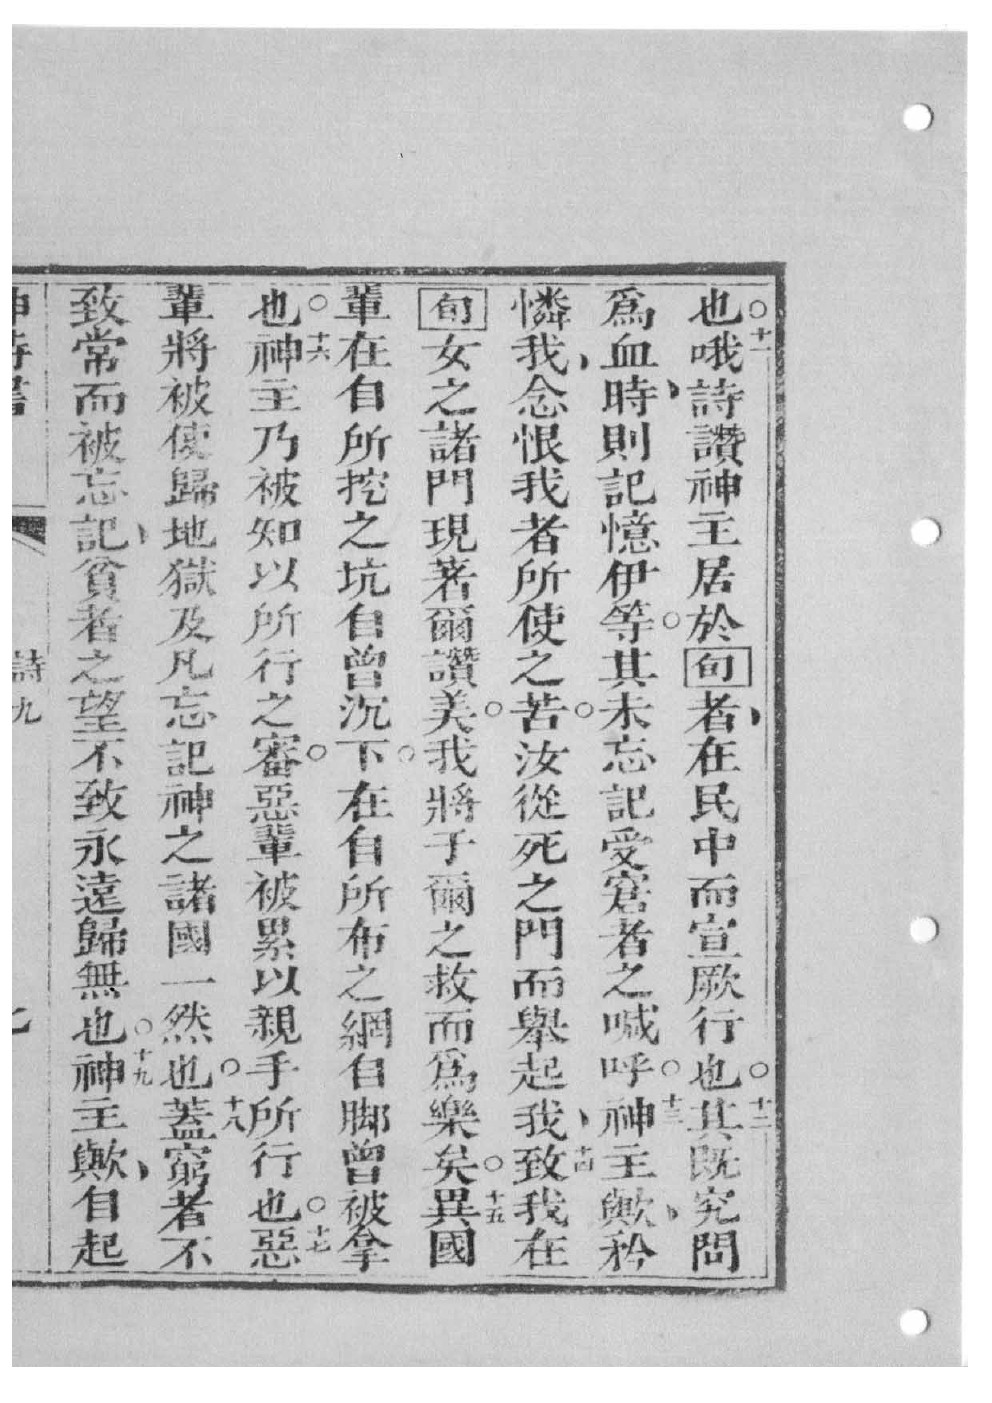 也○十一哦詩讚神主居於旬者、在民中而宣厥行也○十二其既究問
爲血時、則記憶伊等○其未忘記受窘者之喊呼○十三神主歟、矜
憐我、念恨我者所使之苦○汝從死之門而舉起我、十四致我在
旬女之諸門現著爾讚美○我將于爾之救而爲樂矣○十五異國
輩在自所挖之坑自曾沉下○在自所布之網自脚曾被拿
也○十六神主乃被知以所行之審○惡輩被累以親手所行也○十七惡
輩將被使歸地獄及凡忘記神之諸國一然也○十八蓋窮者不
致常而被忘記、貧者之望不致永遠歸無也○十九神主歟、自起
詩九